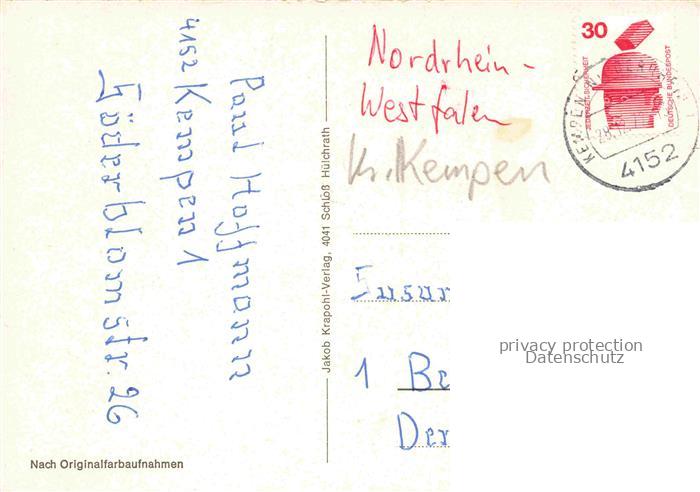 Paul Hoffmann
4152 Kempen 1
Söderblomstr. 26
Jakob Krapohl-Verlag, 4041 Schloß Hülchrath
Nordrhein-
Westfalen
Kr. Kempen
30
DEUTSCHE BUNDESPOST
KEMPEN
4152
Susur
1 Be
Der
privacy protection
Datenschutz
Nach Originalfarbaufnahmen